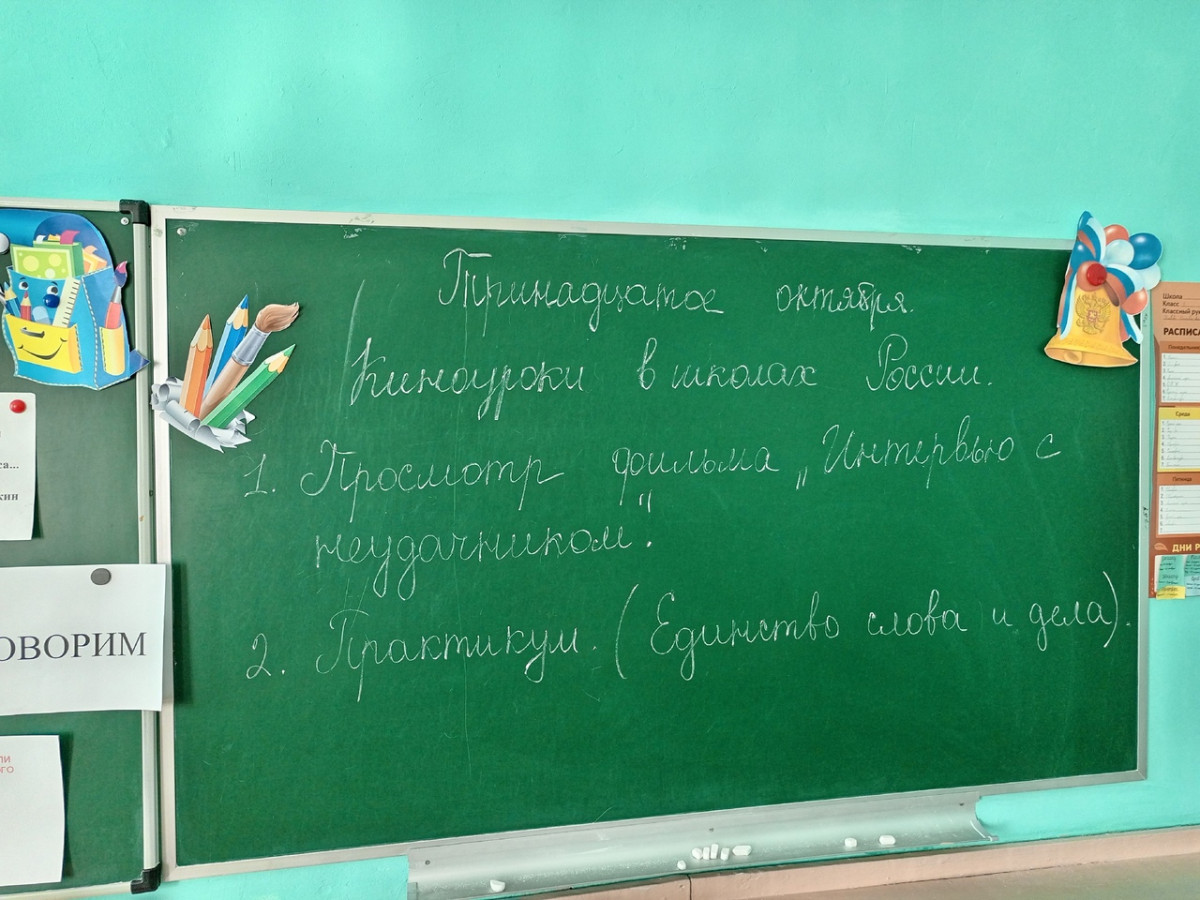 Тринадцатое октября.
Киноуроки в школах России.
1. Просмотр фильма „Интервью с
неудачником".
2. Практикум. (Единство слова и дела).
ОВОРИМ
Школа
Класс
РАСПИСА
Понедельник
Среда
Пятница
ДНИ Р